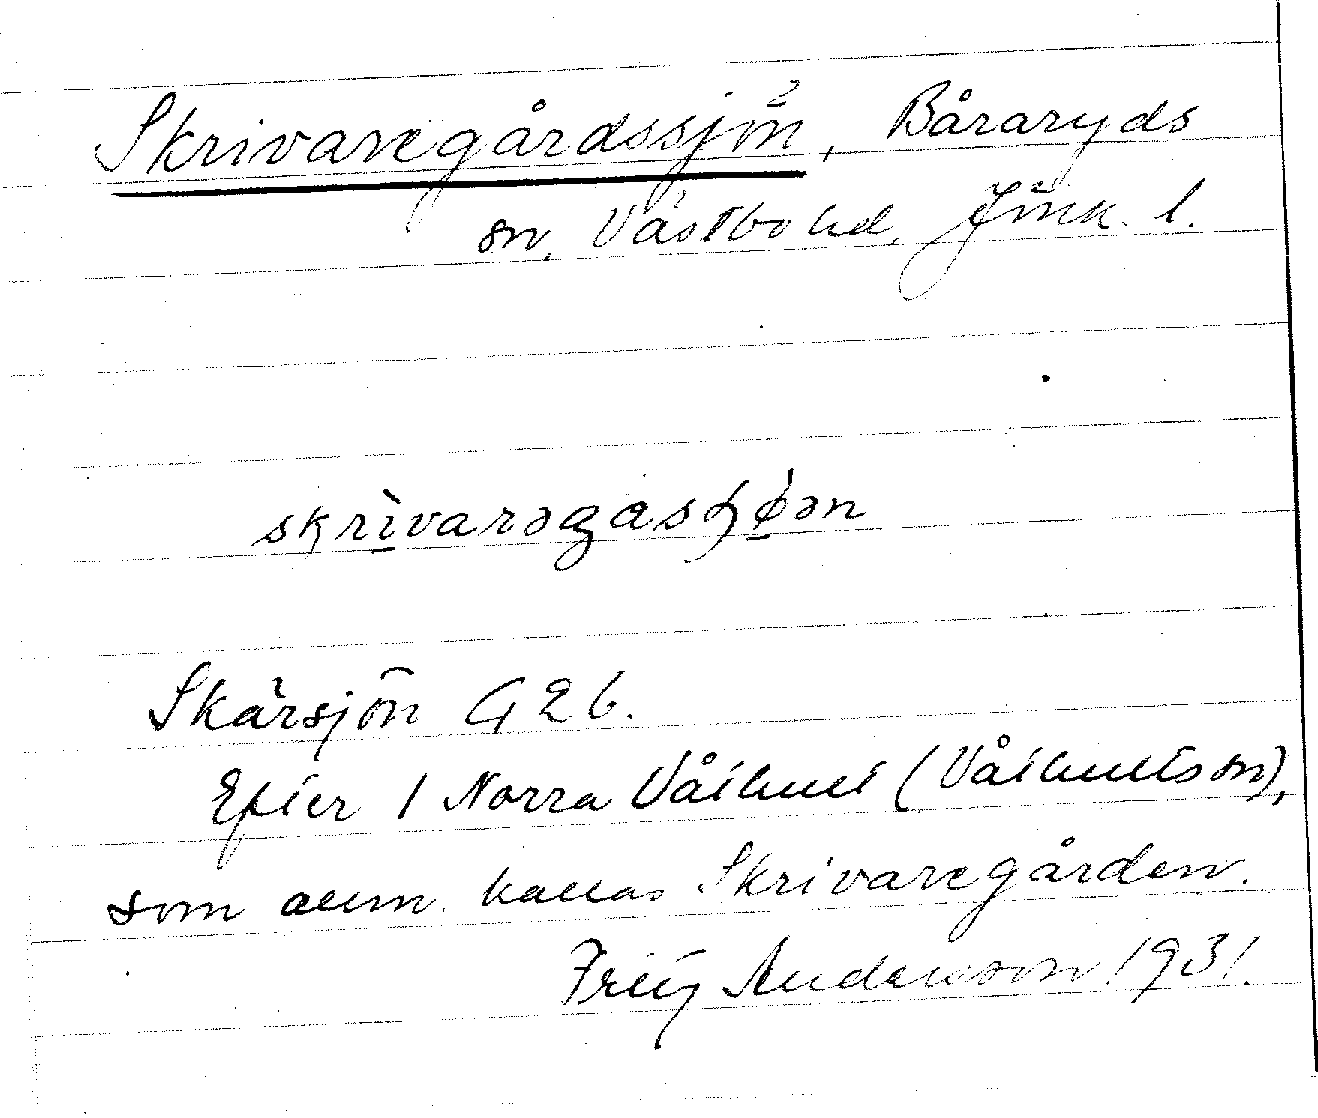 Skrivaregårdssjön, Båraryds
sn, Västbo hd, Jönk. l.
skrìvarəgasɧøən
Skärsjön G 2 b.
Efter 1 Norra Våthult (Våthults sn),
som allm. kallas Skrivaregården.
Fritz Andersson 1931.